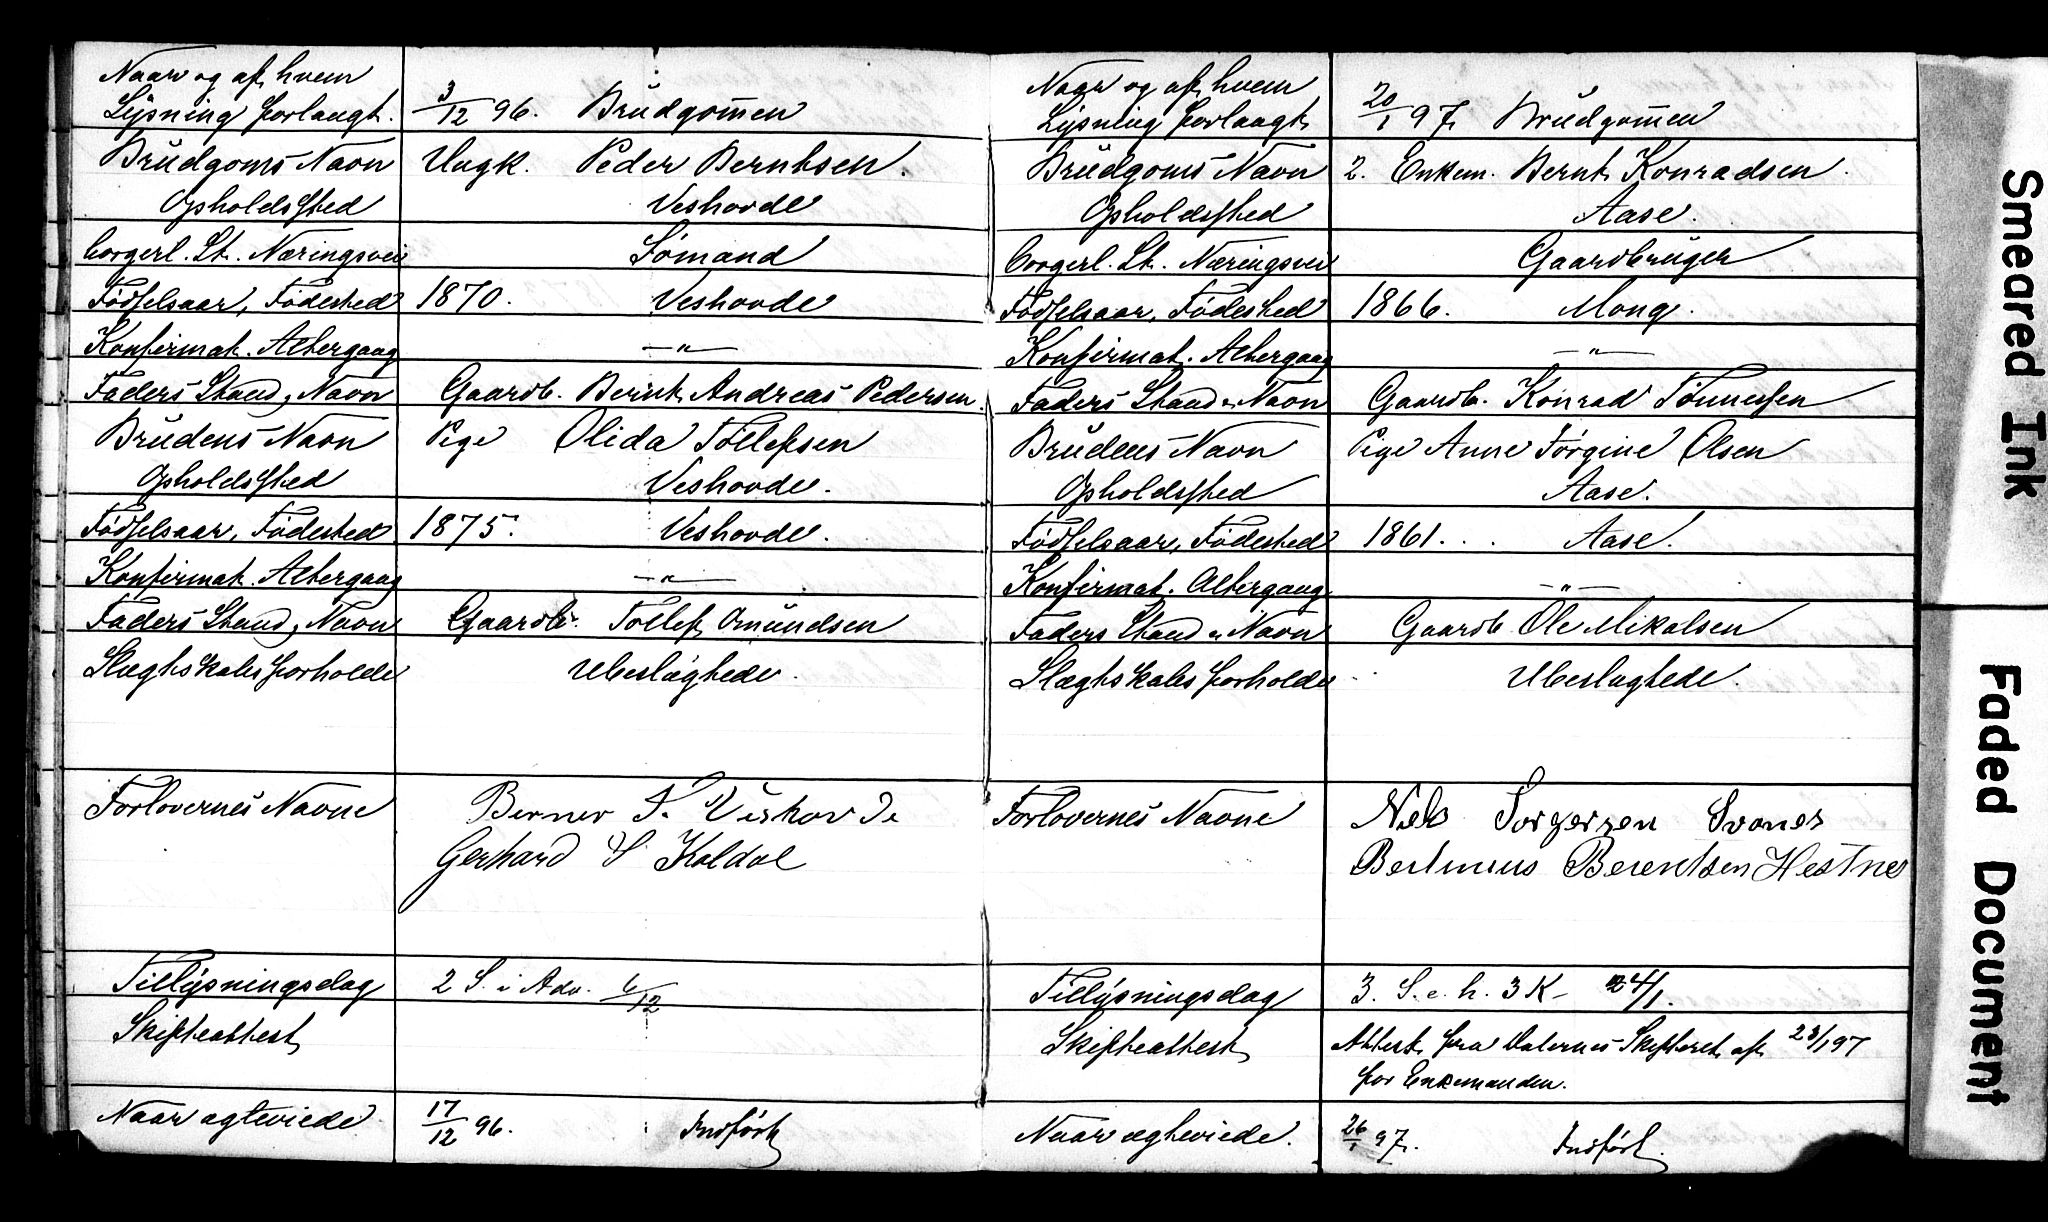 Naar og af hvem
Lysning forlangt. 3/12 96. Brudgommen
Brudgoms Navn Ungk. Peder Berntsen.
Opholdssted Veshovde
borgerl. St. Næringsvei Sømand
Fødselsaar, Fødested 1870. Veshovde
Konfirmat. Altergang —"—
Faders Stand, Navn Gaardb. Bernt Andreas Pedersen.
Brudens Navn Pige Olida Tollefsen
Opholdssted Veshovde.
Fødselsaar, Fødested 1875. Veshovde.
Konfirmat. Altergang —"—
Faders Stand, Navn Gaardb. Tollef Omundsen
Slægtskabsforholde Ubeslægtede.
Forlovernes Navne Berner T. Veshovde
Gerhard S Koldal
Tillysningsdag 2 S. i Adv. 6/12
Skifteattest
Naar ægteviede 17/12 96. Indført
Naar og af hvem
Lysning forlangt 20/1 97. Brudgommen
Brudgoms Navn 2. Enkem. Bernt Konradsen.
Opholdssted Aase.
Borgerl. St. Næringsvei Gaardbruger
Fødselsaar, Fødested 1866. Mong.
Konfirmat. Altergang —"—
Faders Stand, Navn Gaardb. Konrad Tønnessen
Brudens Navn Pige Anne Torgine Olsen
Opholdssted Aase.
Fødselsaar, Fødested 1861. Aase.
Konfirmat. Altergang —"—
Faders Stand, Navn Gaardb. Ole Mikalsen
Slægtskabsforholde Ubeslægtede.
Forlovernes Navne Nels Torgersen Svanes
Bertinius Berentsen Hestnes
Tillysningsdag 3. S. e. h. 3 K— 24/1.
Skifteattest Attest fra Dalernes Skifteret af 23/1 97
for Enkemanden.
Naar ægteviede. 26/1 97. Indført.
Smeared Ink
Faded Document